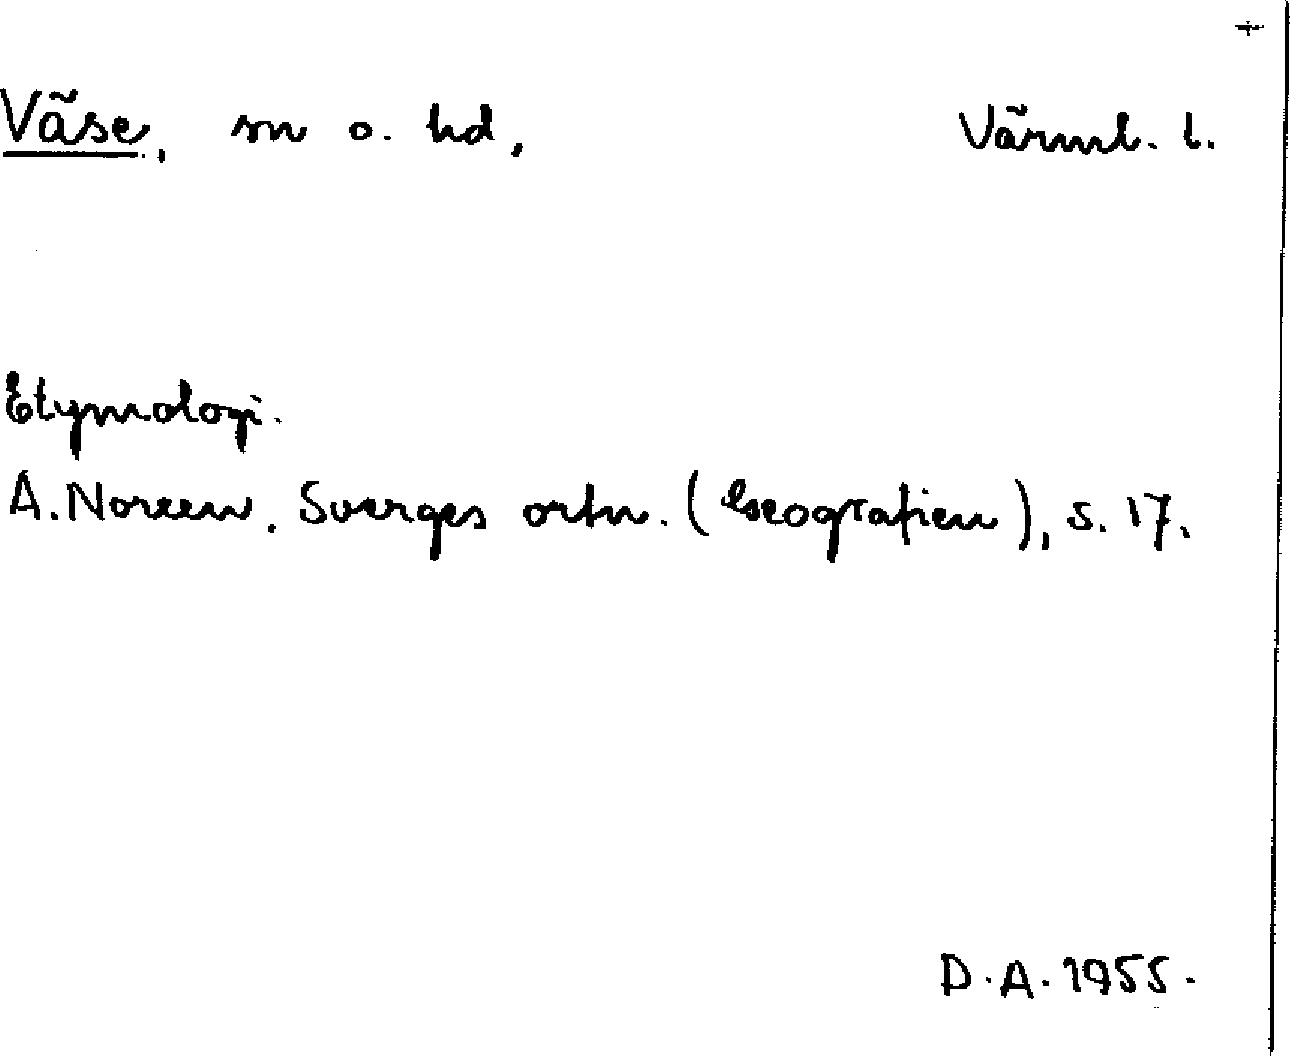 Väse, sn o. hd, Värml. l.
Etymologi.
A. Noreen. Sverges ortn. (Geografien), s. 17.
D. A. 1955.